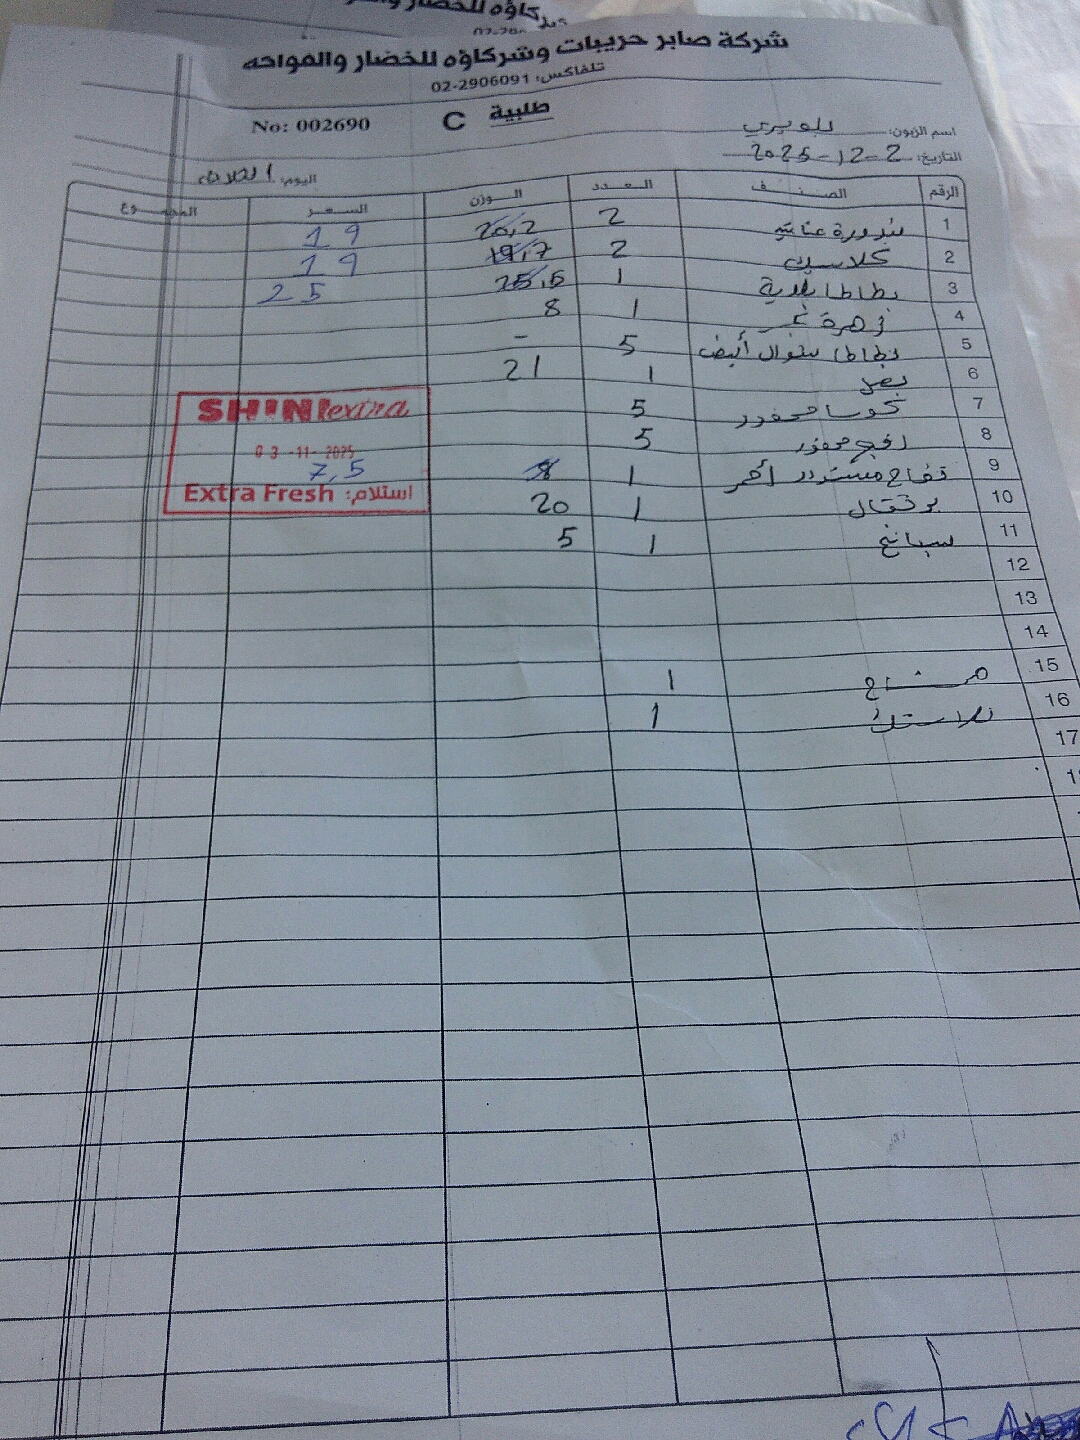 شركة صابر حريبات وشركاؤه للخضار والفواكه
تلفاكس: 02-2906091
طلبية C No: 002690
اسم الزبون:
التاريخ: 2025-12-2
اليوم: الثلاثاء
الرقم الصنف العدد الوزن السعر المجموع
1 بندورة عناقيد 2 26,2 19
2 كلاسيك 2 19,7 19
3 بطاطا 1 25,5 25
4 زهرة 1 8
5 بطاطا أبيض 5 -
6 بصل 1 21
7 كوسا محفور 5
8 محفور 5
9 تفاح مستورد أحمر 1 8 7,5
10 برتقال 1 20
11 سبانخ 1 5
12
13
14
15 مشتاح 1
16 بلاستيك 1
17
SHINI extra
03-11-2025
Extra Fresh استلام: